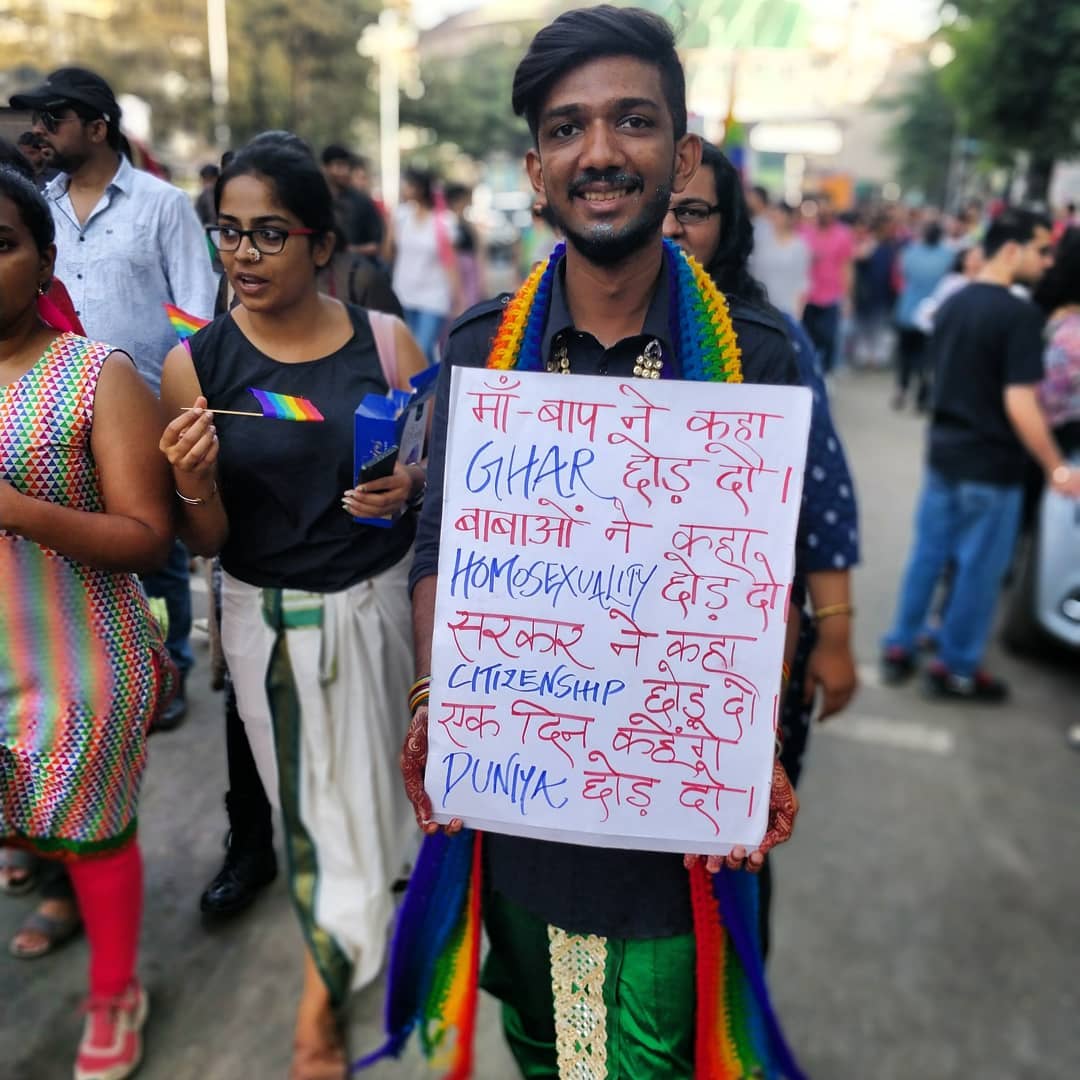 माँ-बाप ने कहा
GHAR छोड़ दो।
बाबाओं ने कहा,
HOMOSEXUALITY छोड़ दो
सरकार ने कहा
CITIZENSHIP छोड़ दो।
एक दिन कहेंगे
DUNIYA छोड़ दो।